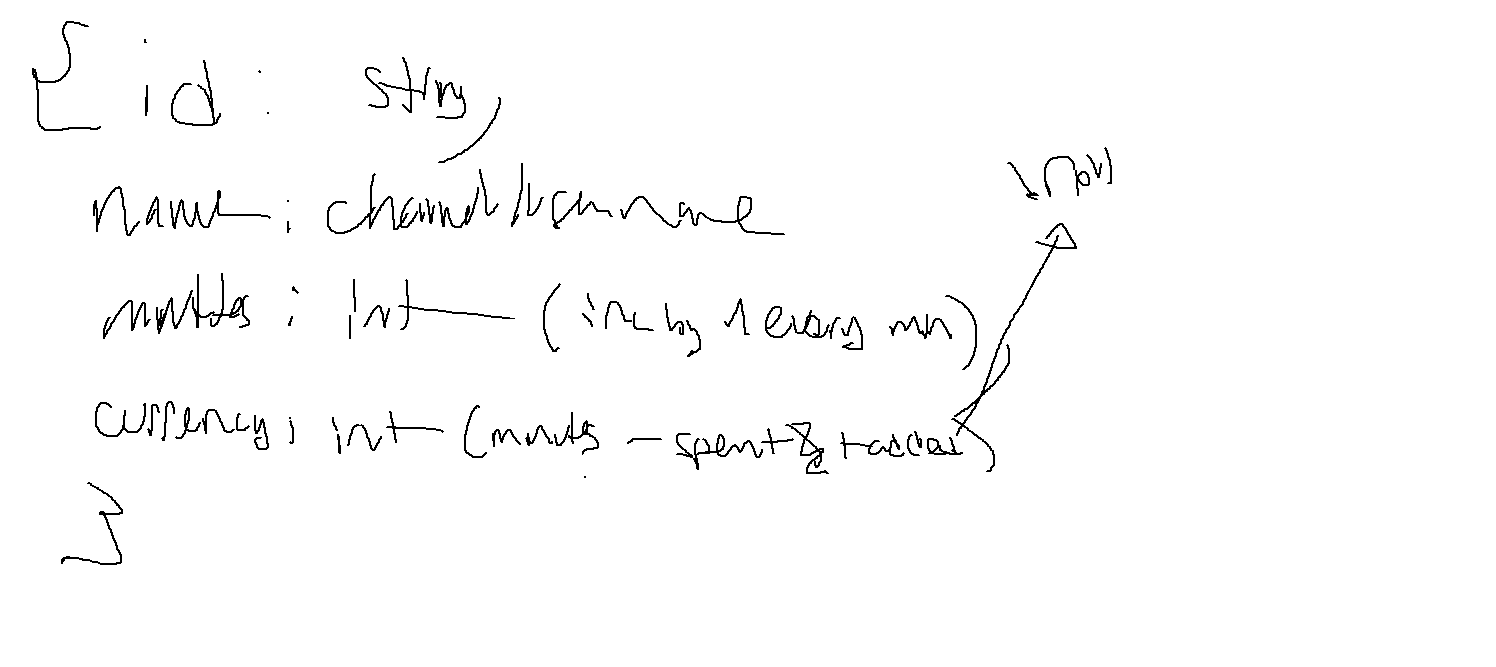 { id : string,
name : channel/username
minutes : int (inc by 1 every min)
currency : int (minutes - spent & + added)
}